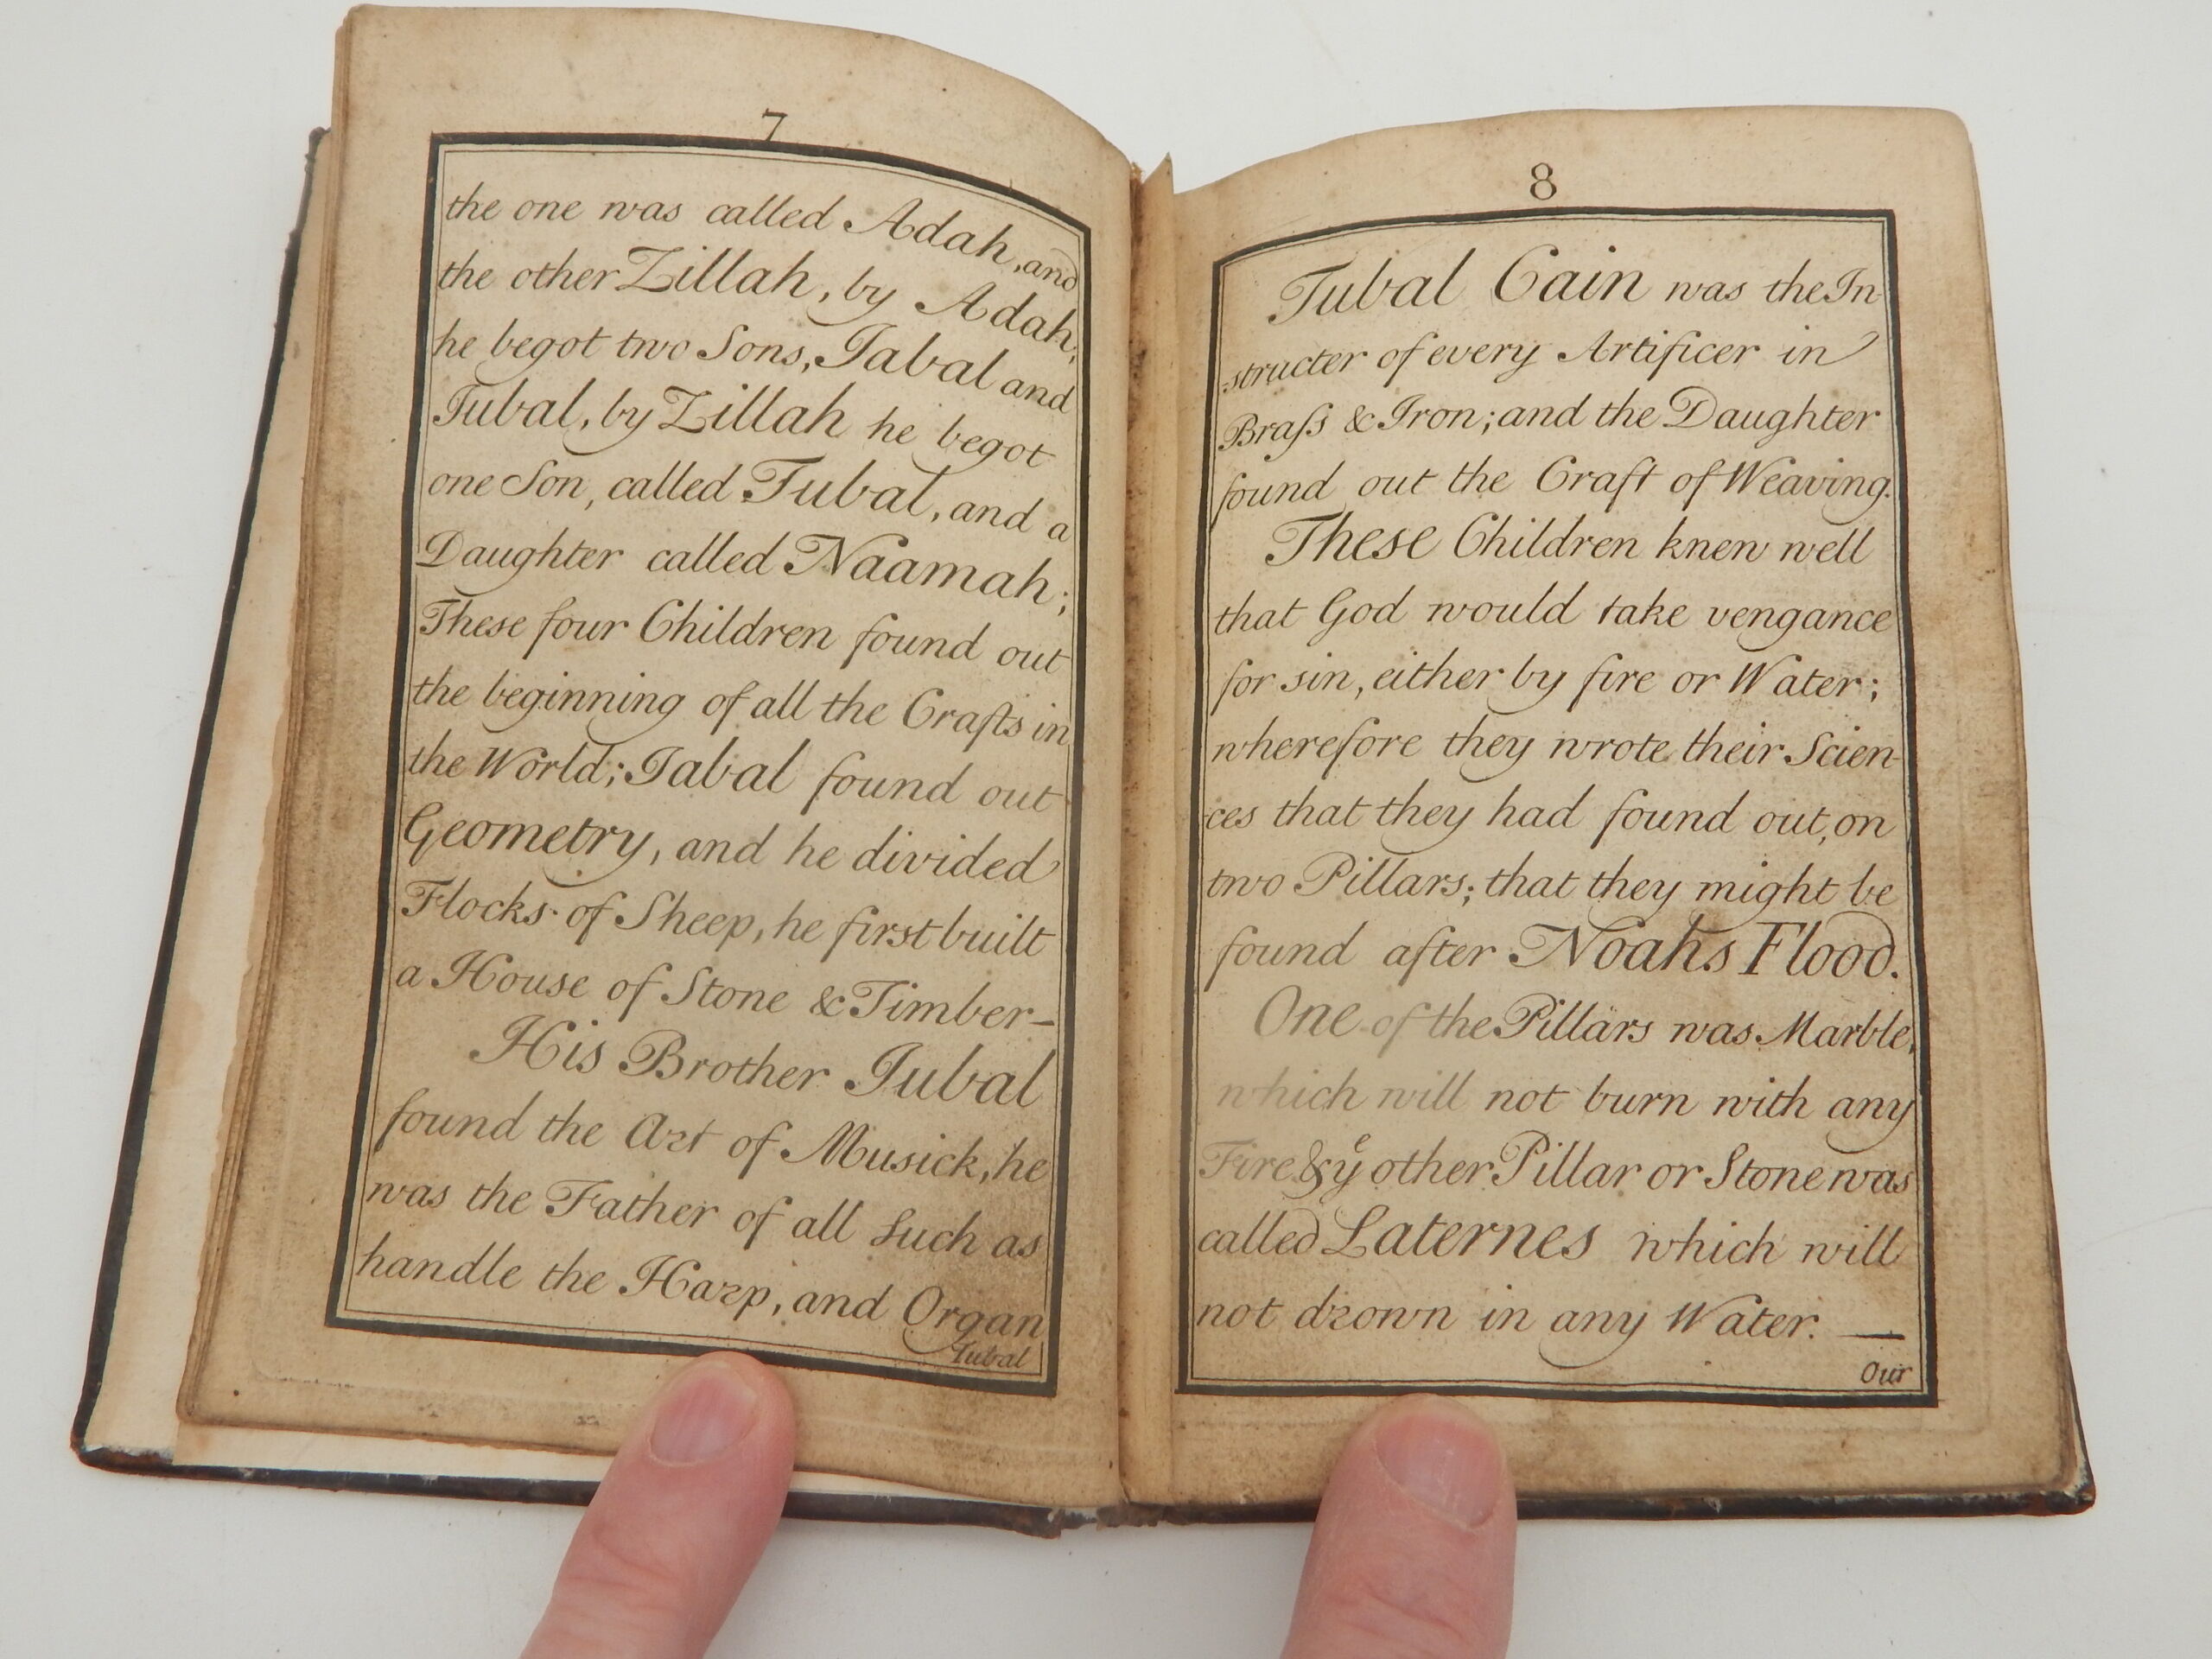 7
the one was called Adah, and
the other Zillah, by Adah,
he begot two Sons, Jabal and
Jubal, by Zillah he begot
one Son, called Tubal, and a
Daughter called Naamah;
These four Children found out
the beginning of all the Crafts in
the World; Jabal found out
Geometry, and he divided
Flocks of Sheep, he first built
a House of Stone & Timber-
His Brother Jubal
found the Art of Musick, he
was the Father of all such as
handle the Harp, and Organ
Tubal
8
Tubal Cain was the In
structer of every Artificer in
Braſs & Iron; and the Daughter
found out the Craft of Weaving.
These Children knew well
that God would take vengance
for sin, either by fire or Water;
wherefore they wrote their Scien-
ces that they had found out, on
two Pillars; that they might be
found after Noahs Flood.
One of the Pillars was Marble,
which will not burn with any
Fire & yͤ other Pillar or Stone was
called Laternes which will
not drown in any Water. —
Our